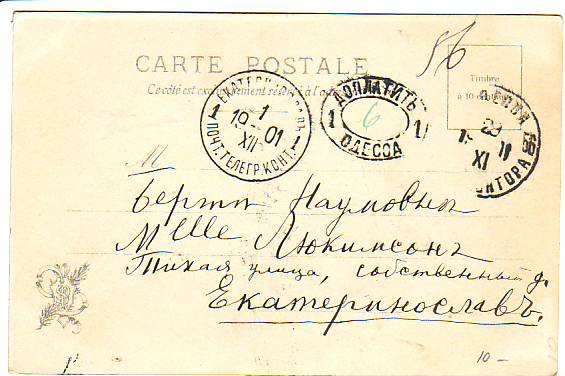 86
CARTE POSTALE
Ce côté est exclusivement réservé à l'adresse
Timbre
à 10 centimes
ЕКАТЕРИНОСЛАВЪ
1
19 01
XII
ПОЧТ. ТЕЛЕГР. КОНТ.
ДОПЛАТИТЬ
1 6 1
ОДЕССА
29
XI
М
Берти Наумовны
Mlle Люкимсонъ
Тихая улица, собственный д.
Екатеринославъ.
10 -